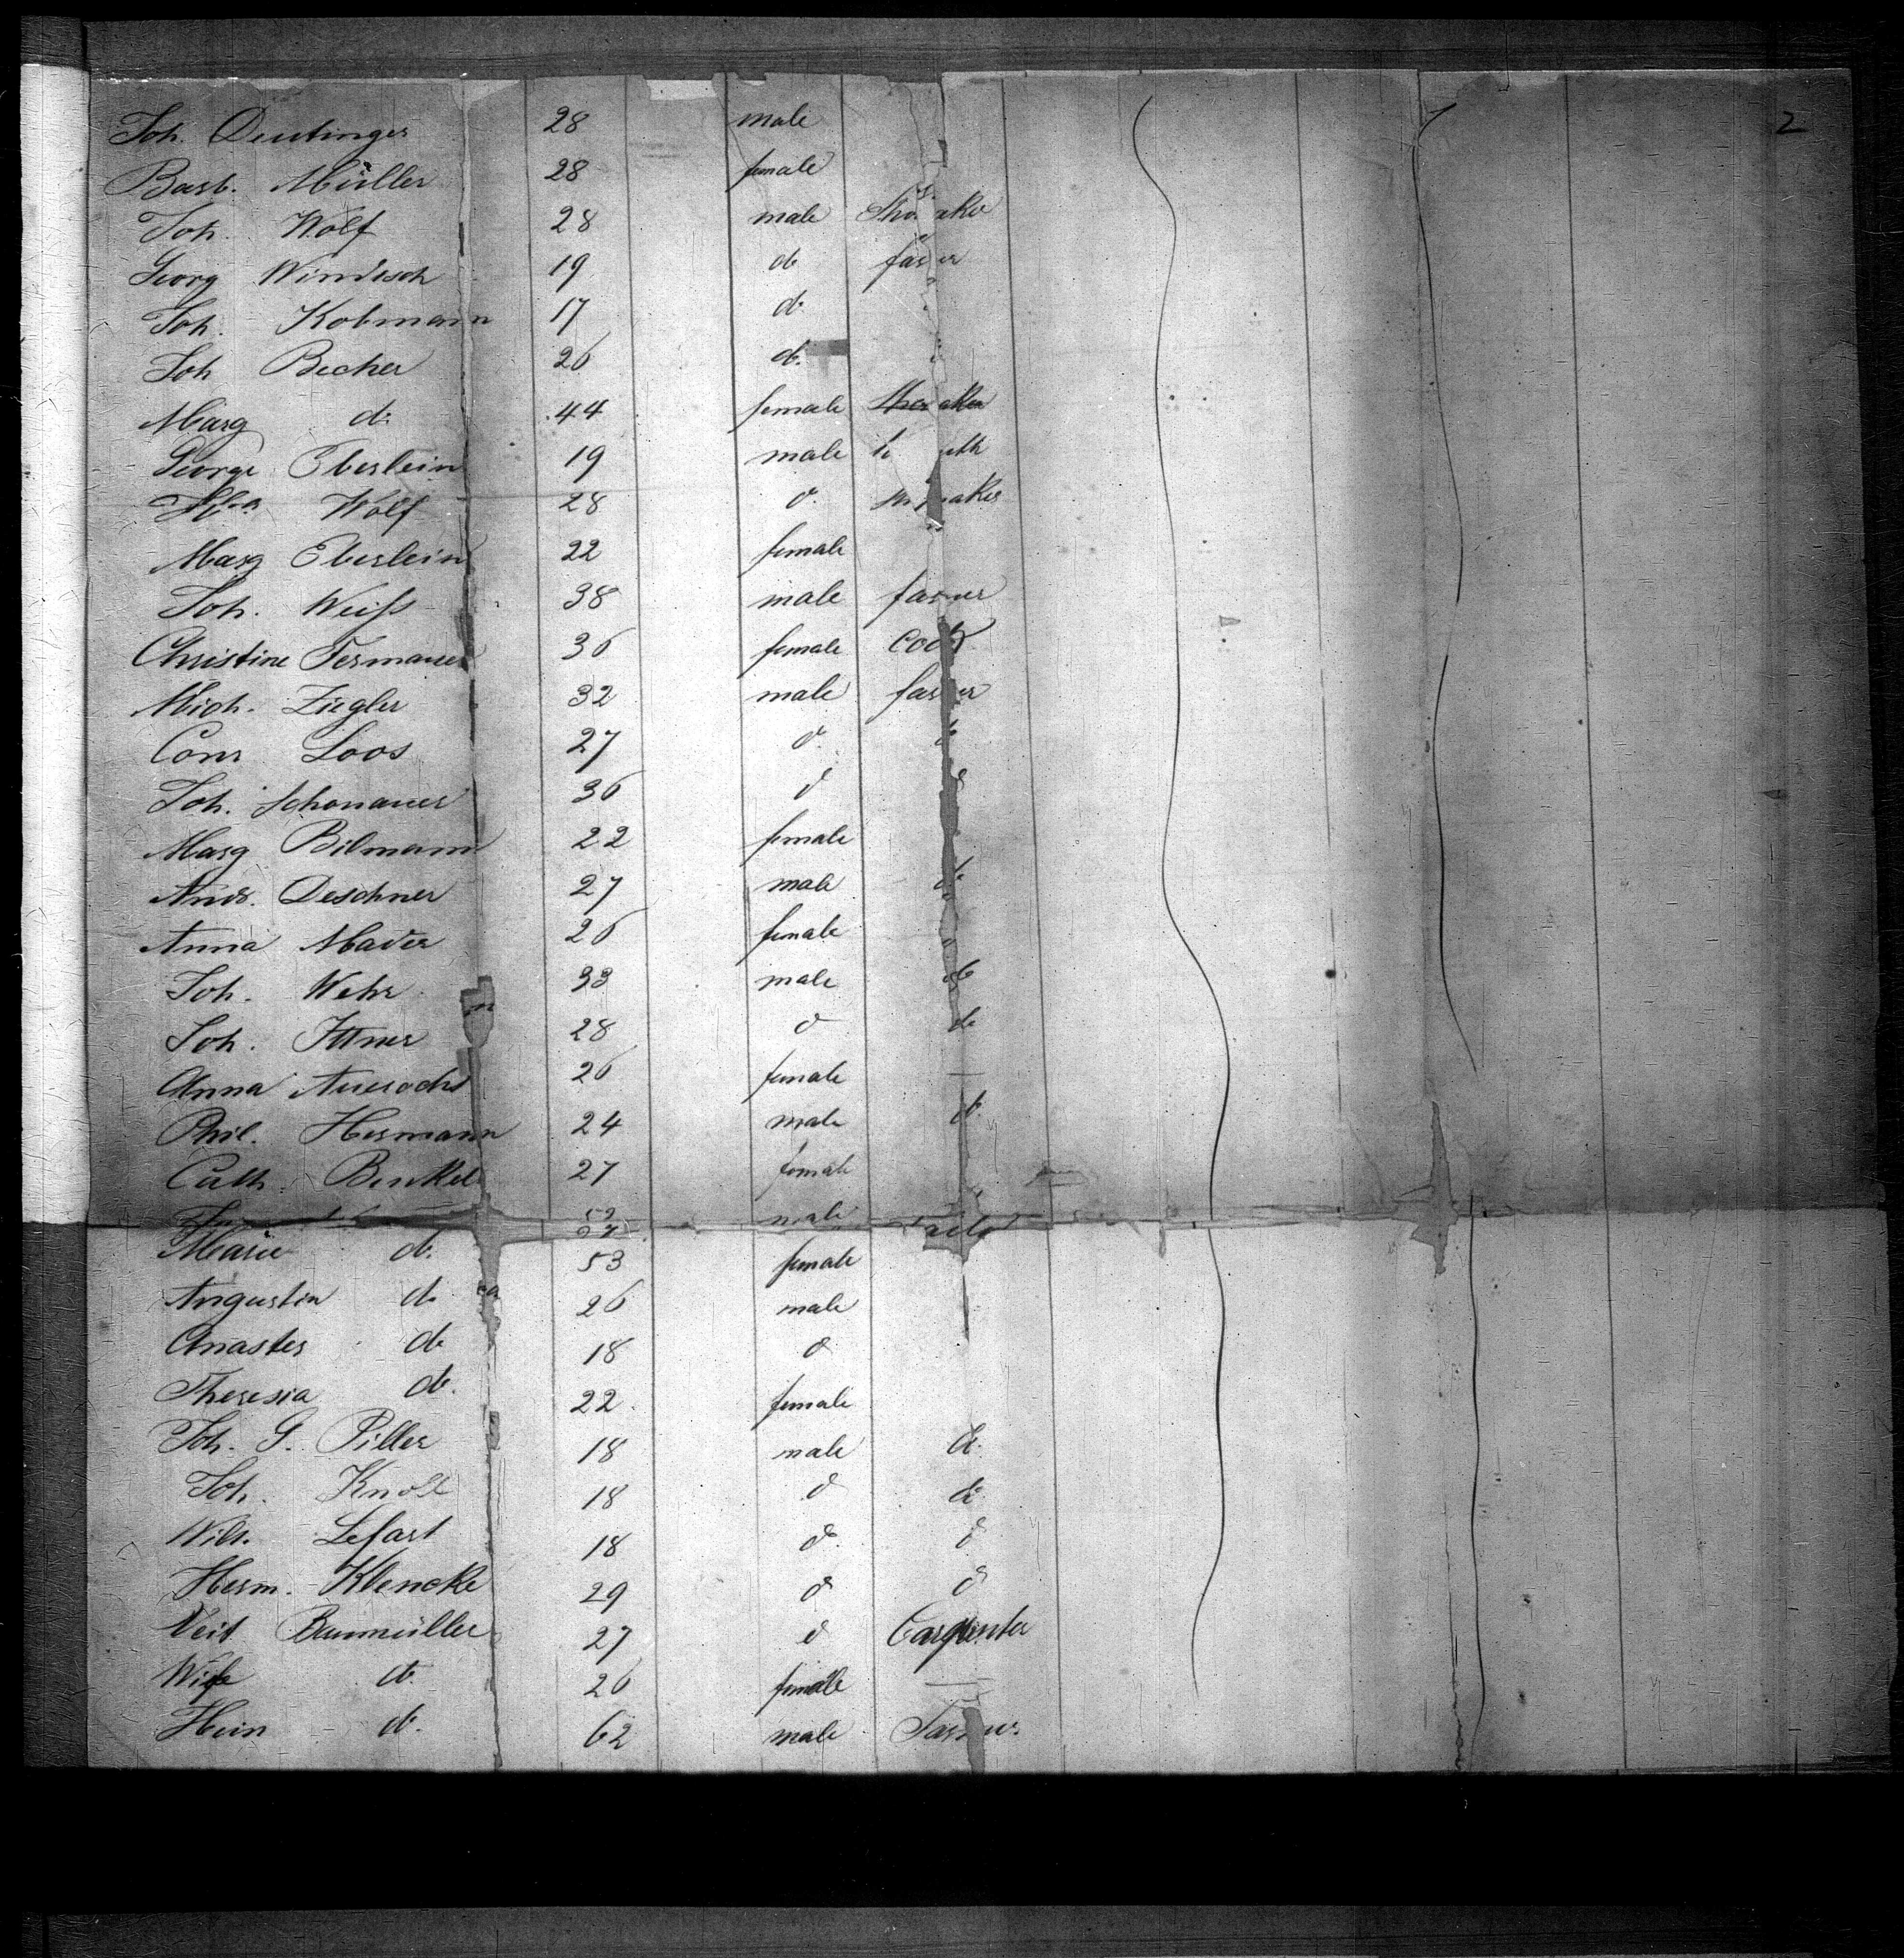 2
Joh. Deutinger 28 male
Barb. Müller 28 female
Joh. Wolf 28 male Sho aker
Georg Windisch 19 do farmer
Joh. Kobmann 17 do
Joh Becher 26 do.
Marg do. 44 female
George Eberlein 19 male
Wolf 28 do. maker
Marg Eberlein 22 female
Joh. Weiss 38 male farmer
Christine Termauer 36 female Cook
Mich. Ziegler 32 male farmer
Conr Loos 27 do. do
Joh. Schonauer 36 do do
Marg Bilmann 22 female
Andr. Deschner 27 male do
Anna Mader 26 female
Joh. Wehr 33 male do
Joh. Ittner 28 do do
Anna Auerochs 26 female —
Phil. Hermann 24 male do.
Cath. Benkel 27 female
male
Marie do. 53 female
Augustin do 26 male
Anaster do 18 do
Theresia do. 22. female
Joh. G. Piller 18 male do.
Joh. Knoll 18 do do
Wilh. Lefart 18 do. do
Herm. Klencke 29 do do
Veit Baumüller 27 do Carpenter
Wife do. 26 female —
Hein do. 62 male Farmer